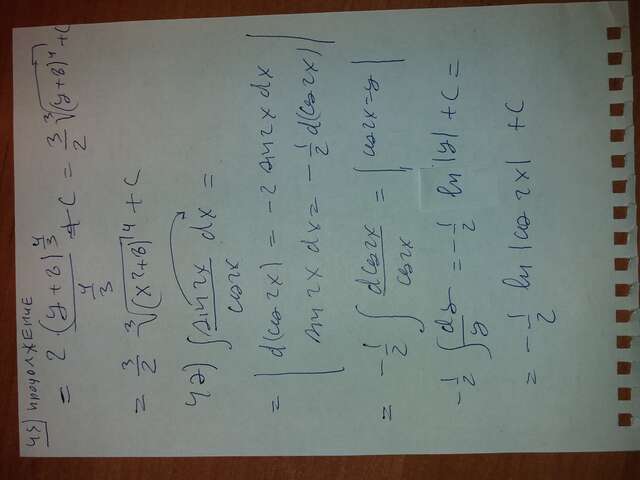 45) продолжение
= 2 · (y+8)^(4/3) / (4/3) + C = 3/2 ∛(y+8)⁴ + C
= 3/2 ∛(x²+8)⁴ + C
42) ∫ sin 2x / cos 2x dx =
= | d(cos 2x) = -2 sin 2x dx
sin 2x dx = -1/2 d(cos 2x) |
= -1/2 ∫ d cos 2x / cos 2x = | cos 2x = y |
-1/2 ∫ dy/y = -1/2 ln |y| + C =
= -1/2 ln |cos 2x| + C